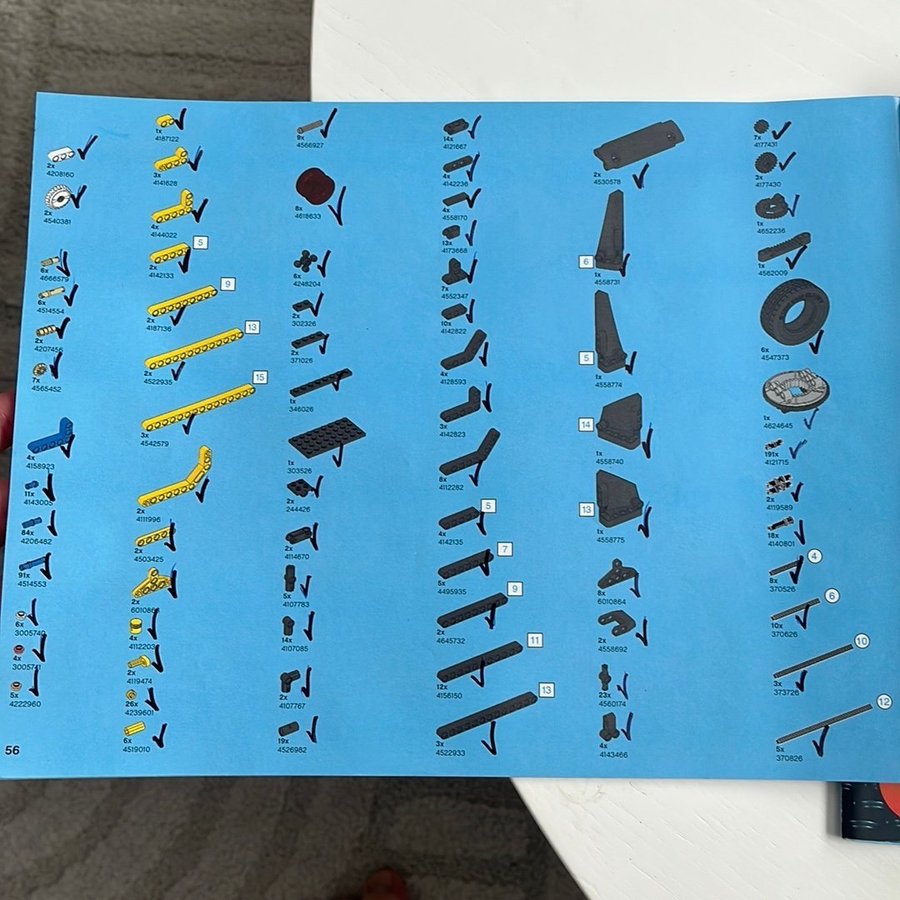 2x
4208160
2x
4540381
6x
4666579
6x
4514554
2x
4207456
7x
4565452
4x
4158923
11x
4143005
84x
4206482
91x
4514553
6x
3005740
4x
3005741
5x
4222960
56
1x
4187122
3x
4141628
4x
4144022
5
2x
4142133
9
2x
4187136
13
2x
4522935
15
3x
4542579
2x
4111996
2x
4503425
2x
4x
4112203
2x
4119474
26x
4239601
6x
4519010
9x
4566927
8x
4618633
6x
4248204
2x
302326
2x
371026
1x
346026
1x
303526
2x
244426
2x
4114670
5x
4107783
14x
4107085
2x
4107767
19x
4526982
14x
4121667
4x
4142236
4x
4558170
13x
4173668
7x
4552347
10x
4142822
4x
4128593
3x
4142823
8x
4112282
5
4x
4142135
7
5x
4495935
9
2x
4645732
11
12x
4156150
13
3x
4522933
2x
4530578
6
1x
4558731
5
1x
4558774
14
1x
4558740
13
1x
4558775
8x
6010864
2x
4558692
23x
4560174
4x
4143466
7x
4177431
3x
4177430
1x
4652236
1x
4562009
6x
4547373
1x
4624645
191x
4121715
2x
4119589
18x
4140801
4
8x
370526
6
10x
370626
10
3x
373726
12
5x
370826